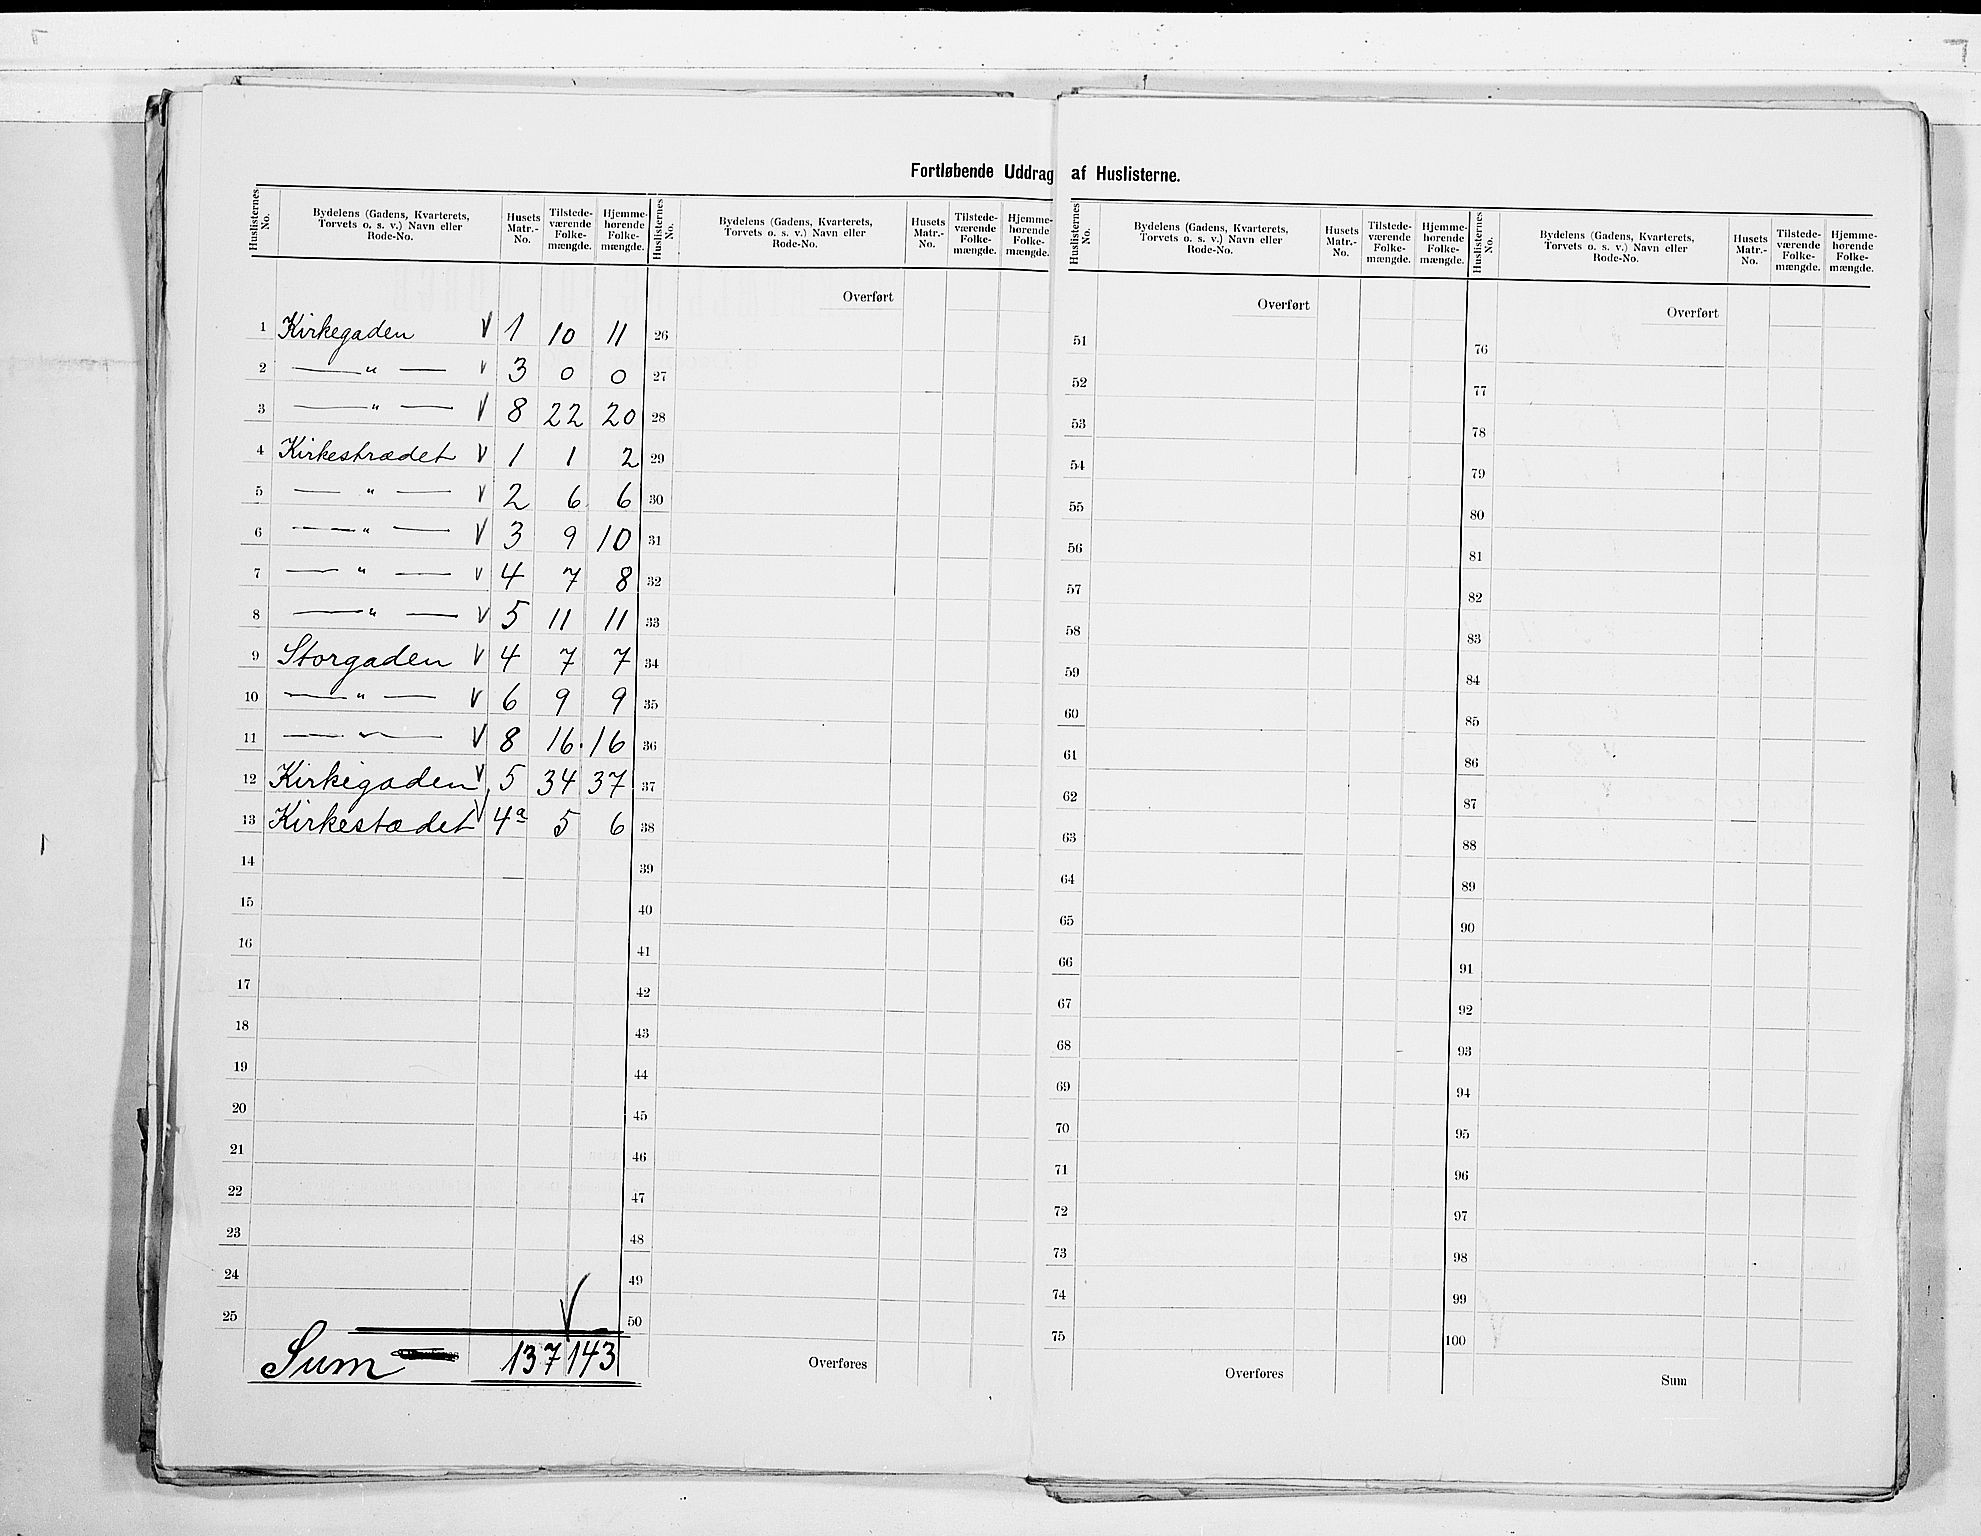 Fortløbende Uddrag af Huslisterne.
Huslisternes No. | Bydelens (Gadens, Kvarterets, Torvets o. s. v.) Navn eller Rode-No. | Husets Matr.-No. | Tilstede-værende Folke-mængde. | Hjemme-hørende Folke-mængde.
1 Kirkegaden V 1 10 11
2 — " — V 3 0 0
3 — " — V 8 22 20
4 Kirkestrædet V 1 1 2
5 — " — V 2 6 6
6 — " — V 3 9 10
7 — " — V 4 7 8
8 — " — V 5 11 11
9 Storgaden V 4 7 7
10 — " — V 6 9 9
11 — " — V 8 16. 16
12 Kirkegaden V 5 34 37
13 Kirkestædet V 4a 5 6
14
15
16
17
18
19
20
21
22
23
24
25
Sum 137 143
Huslisternes No. | Bydelens (Gadens, Kvarterets, Torvets o. s. v.) Navn eller Rode-No. | Husets Matr.-No. | Tilstede-værende Folke-mængde. | Hjemme-hørende Folke-mængde.
Overført
26
27
28
29
30
31
32
33
34
35
36
37
38
39
40
41
42
43
44
45
46
47
48
49
50
Overføres
Huslisternes No. | Bydelens (Gadens, Kvarterets, Torvets o. s. v.) Navn eller Rode-No. | Husets Matr.-No. | Tilstede-værende Folke-mængde. | Hjemme-hørende Folke-mængde.
Overført
51
52
53
54
55
56
57
58
59
60
61
62
63
64
65
66
67
68
69
70
71
72
73
74
75
Overføres
Huslisternes No. | Bydelens (Gadens, Kvarterets, Torvets o. s. v.) Navn eller Rode-No. | Husets Matr.-No. | Tilstede-værende Folke-mængde. | Hjemme-hørende Folke-mængde.
Overført
76
77
78
79
80
81
82
83
84
85
86
87
88
89
90
91
92
93
94
95
96
97
98
99
100
Sum